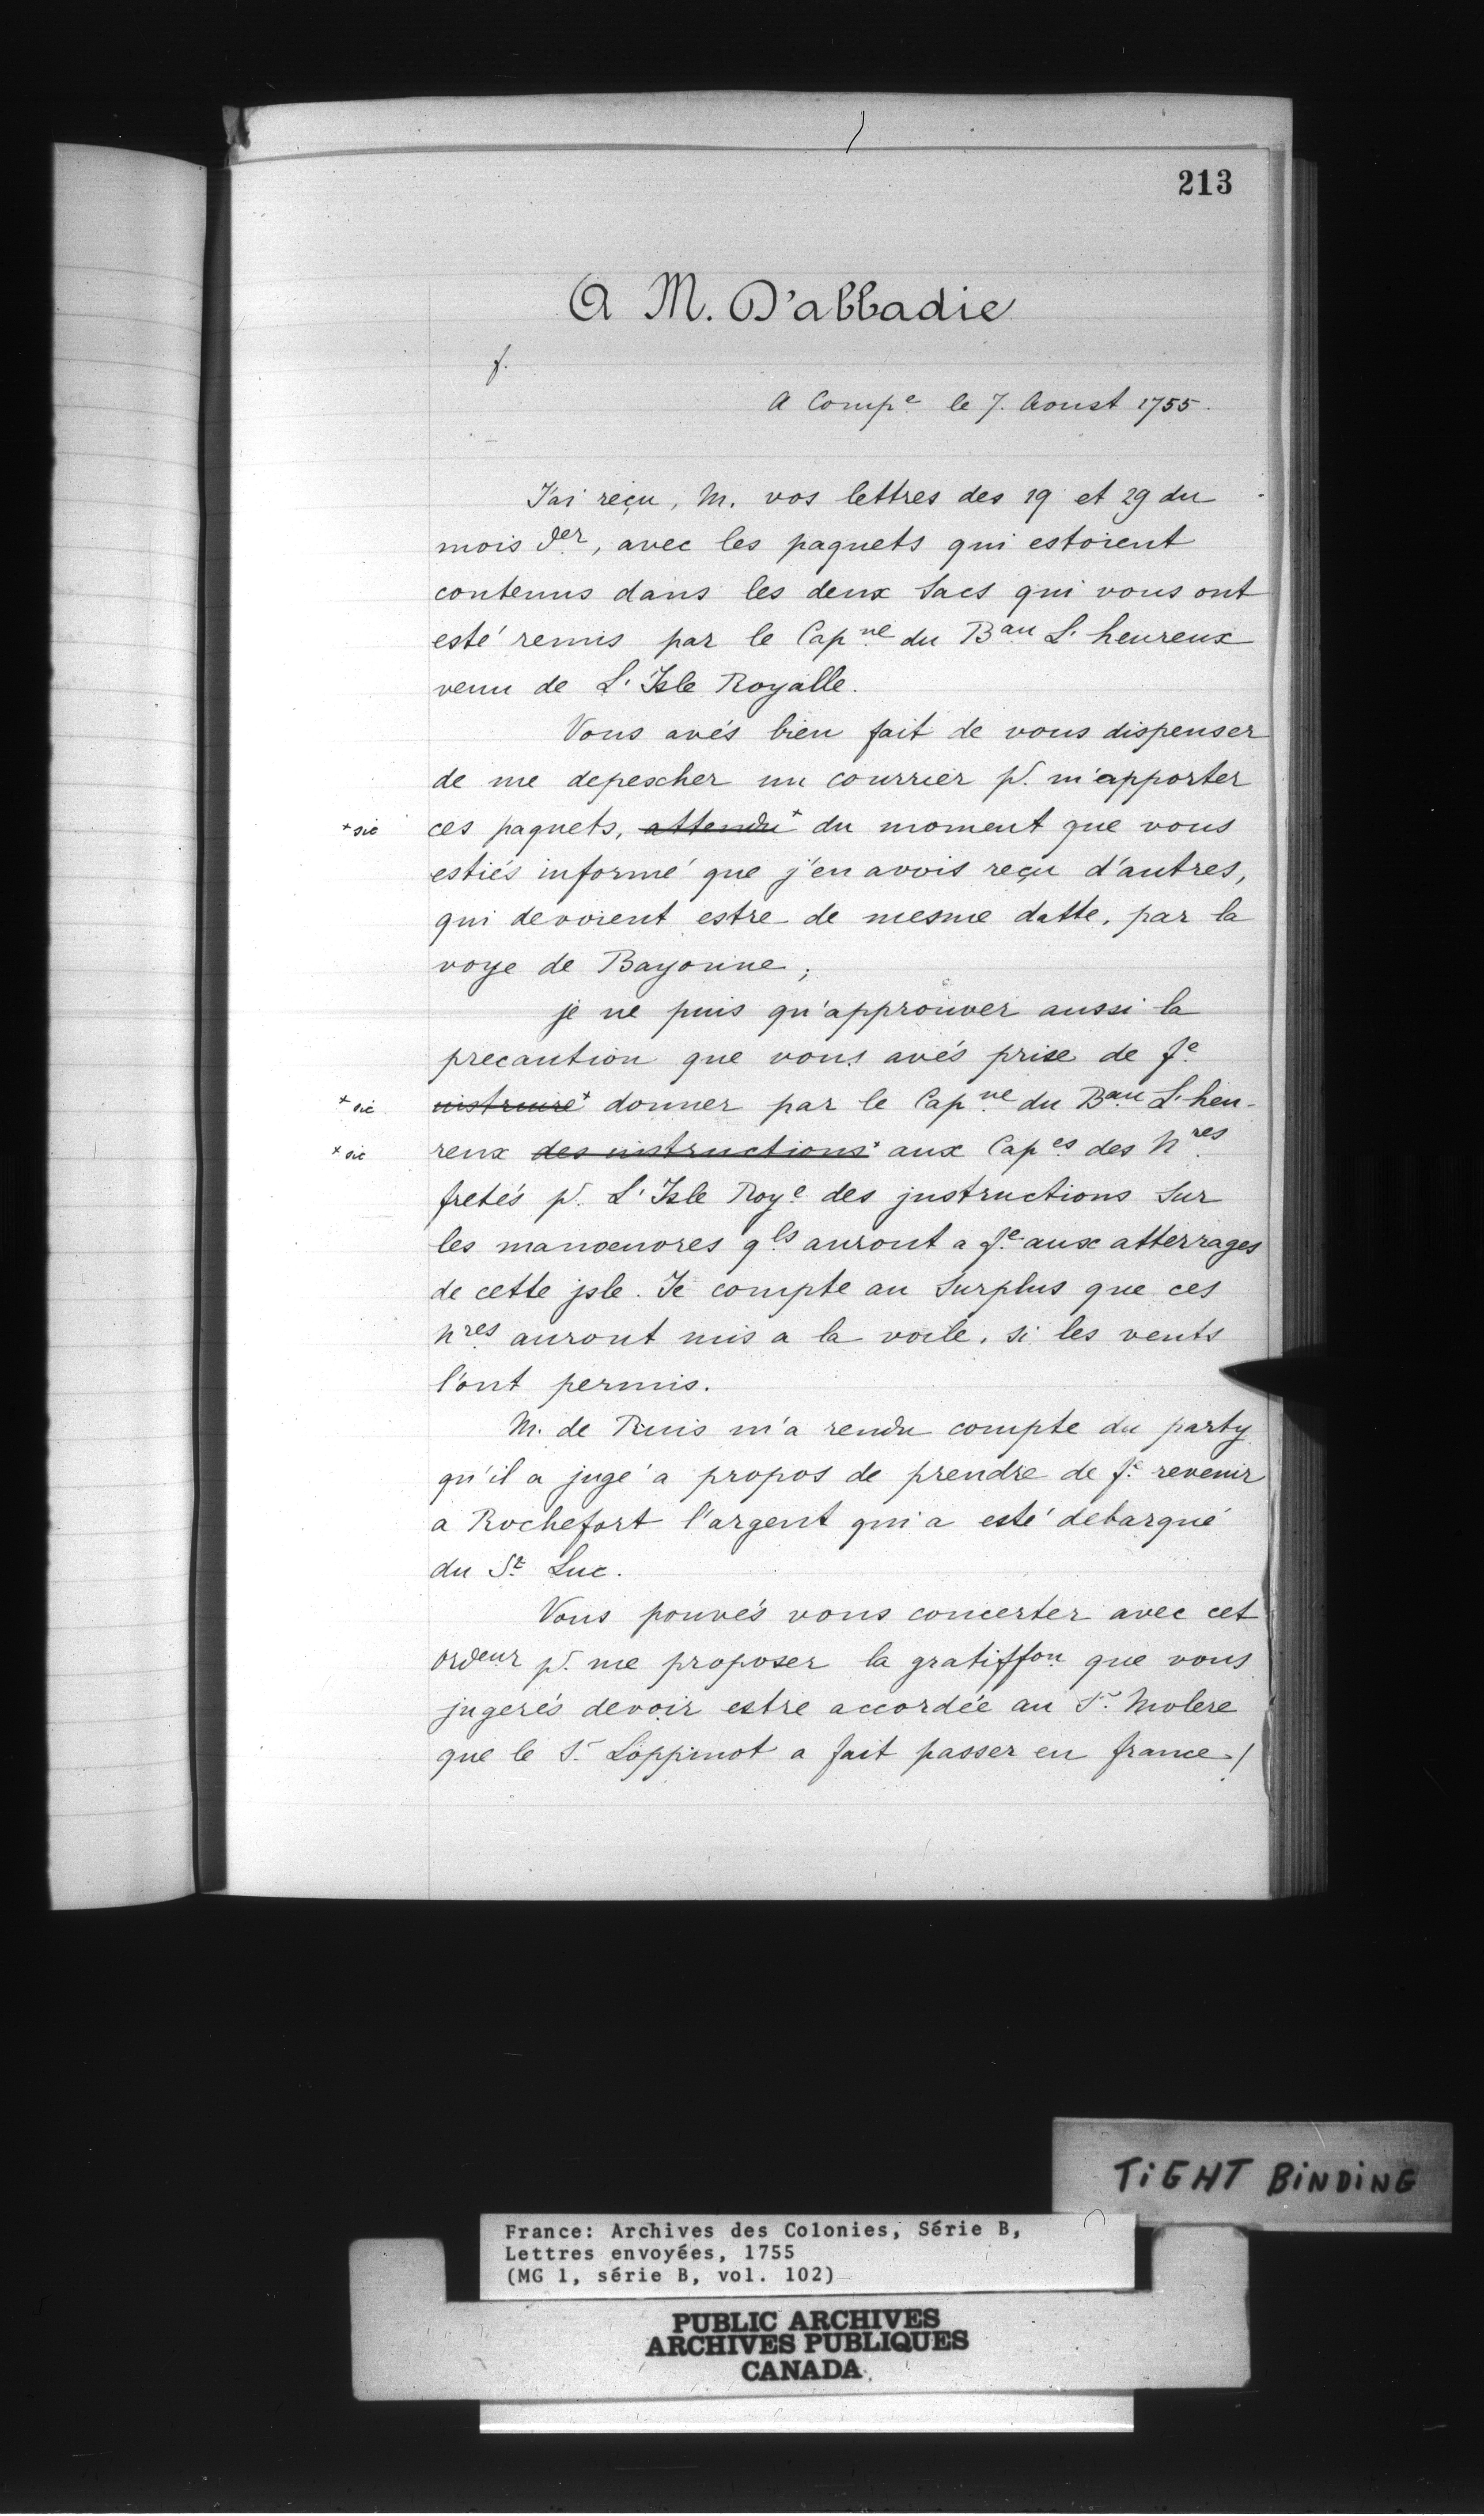 213
A M. D'abbadie
f.
A Comp.e le 7. Aoust 1755.
J'ai reçu, M. vos lettres des 19 et 29 du
mois der, avec les paquets qui estoient
contenus dans les deux Sacs qui vous ont
esté remis par le Cap.ne du B.au L'heureux
venu de L'Isle Royalle.
Vous avés bien fait de vous dispenser
de me depescher un courrier pr. m'apporter
*sic ces paquets, attendu* du moment que vous
estiés informé que j'en avois reçu d'autres,
qui devoient estre de mesme datte, par la
voye de Bayonne;
je ne puis qu'approuver aussi la
precaution que vous avés prise de f.e
*sic instruire* donner par le Cap.ne du B.au L'heu-
*sic reux des instructions* aux Cap.es des N.res
fretés pr. L'Isle Roy.e des jnstructions Sur
les manoeuvres q.ls auront a f.e aux atterrages
de cette jsle. Je compte au Surplus que ces
N.res auront mis a la voile, si les vents
l'ont permis.
M. de Ruis m'a rendu compte du party
qu'il a jugé a propos de prendre de f.e revenir
a Rochefort l'argent qui a esté debarqué
du St. Luc.
Vous pouvés vous concerter avec cet
ordeur pr. me proposer la gratiffon que vous
jugerés devoir estre accordée au Sr. Molere
que le Sr. Loppinot a fait passer en france./
TiGHT BiNDiNG
France: Archives des Colonies, Série B,
Lettres envoyées, 1755
(MG 1, série B, vol. 102)
PUBLIC ARCHIVES
ARCHIVES PUBLIQUES
CANADA